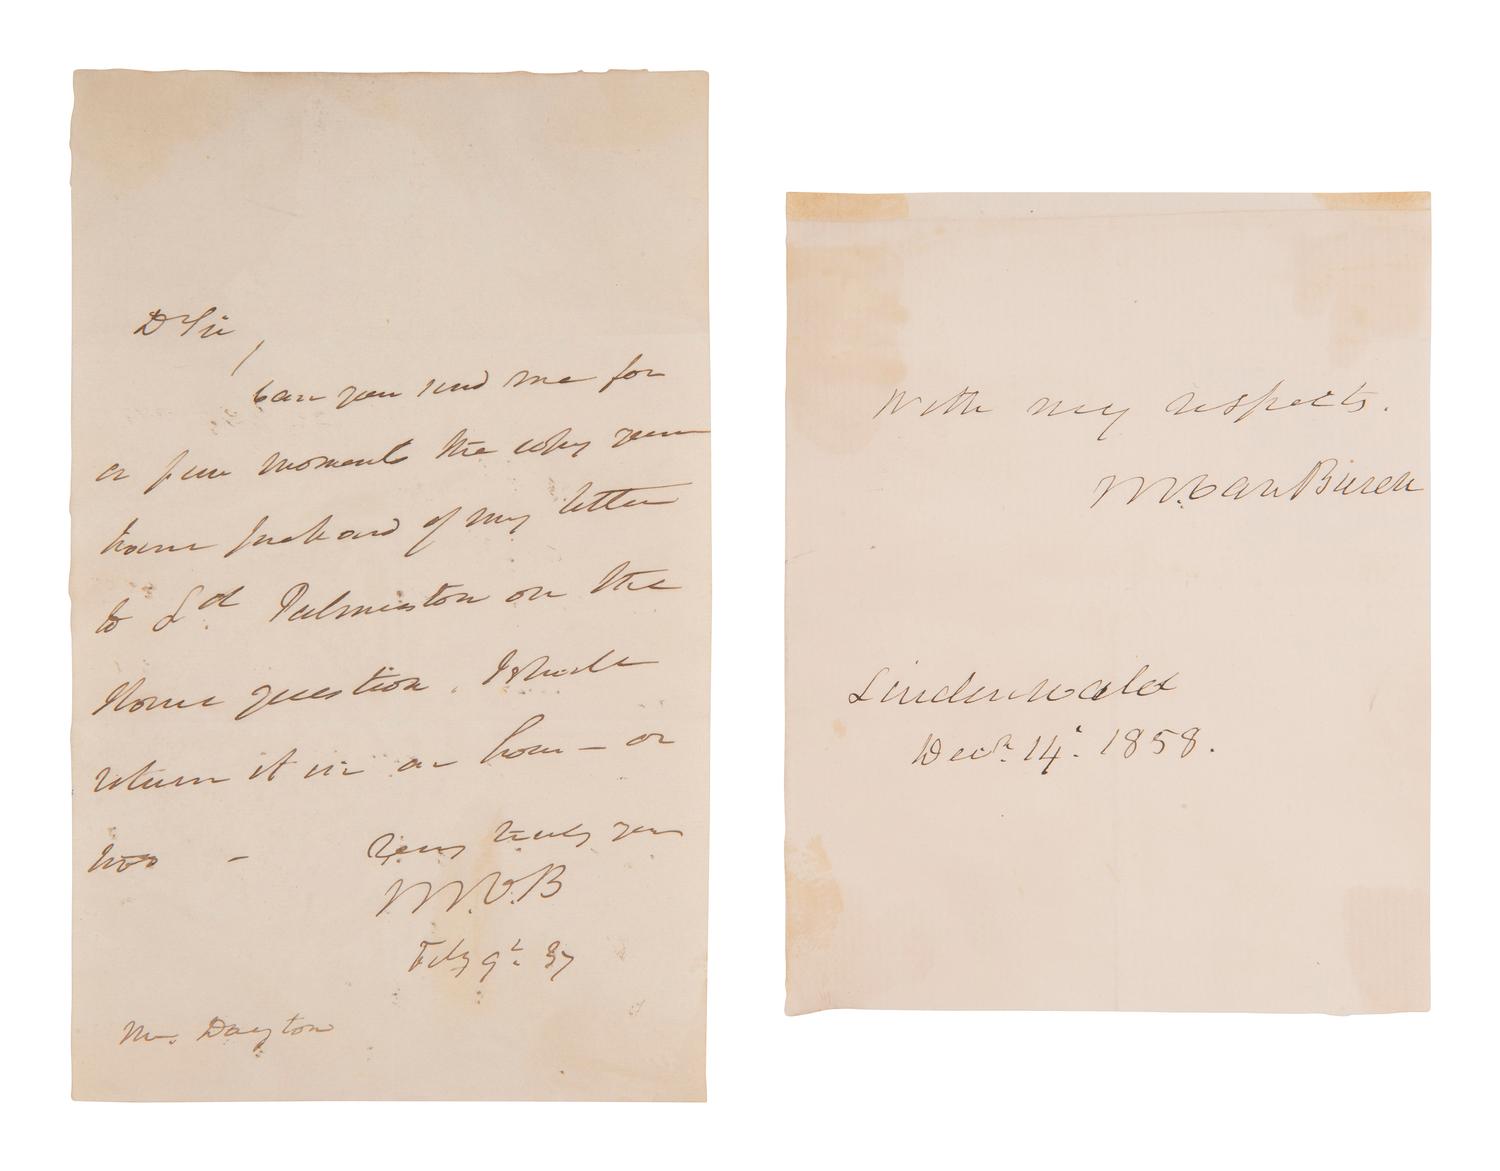 Dr Sir,
Can you send me for
a few moments the copy you
have prepared of my letter
to Ld. Palmerston on the
question. I shall
return it in an hour – or
two – Very truly yours
M.V.B
Feby 9th. 37
Mr. Dayton
With my respects.
M. Van Buren
Lindenwald
Decr. 14. 1858.